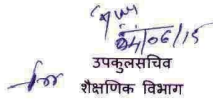 04/06/15
उपकुलसचिव
शैक्षणिक विभाग